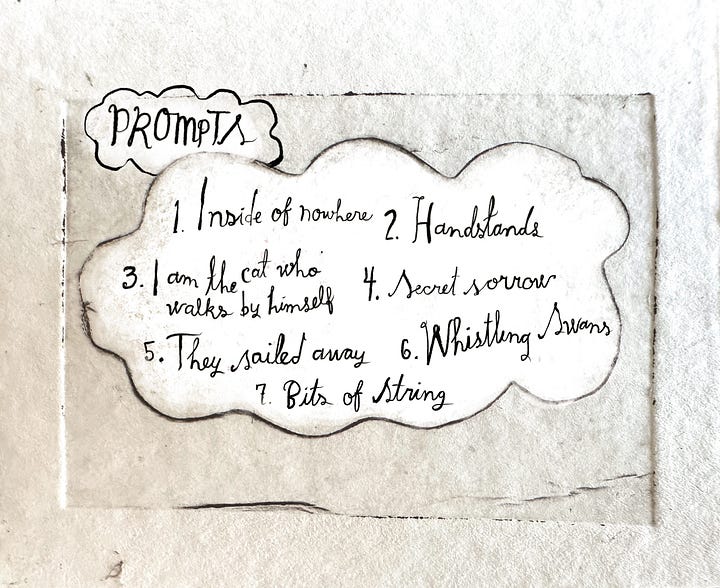 PROMPTS
1. Inside of nowhere 2. Handstands
3. I am the cat who
walks by himself
4. Secret sorrow
5. They sailed away 6. Whistling Swans
7. Bits of String